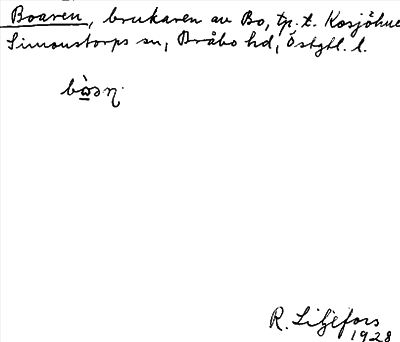 Boaren, brukaren av Bo, tp. t. Kosjöhult
Simonstorps sn, Bråbo hd, Östgtl. l.
bὼərη
R. Liljefors
1928